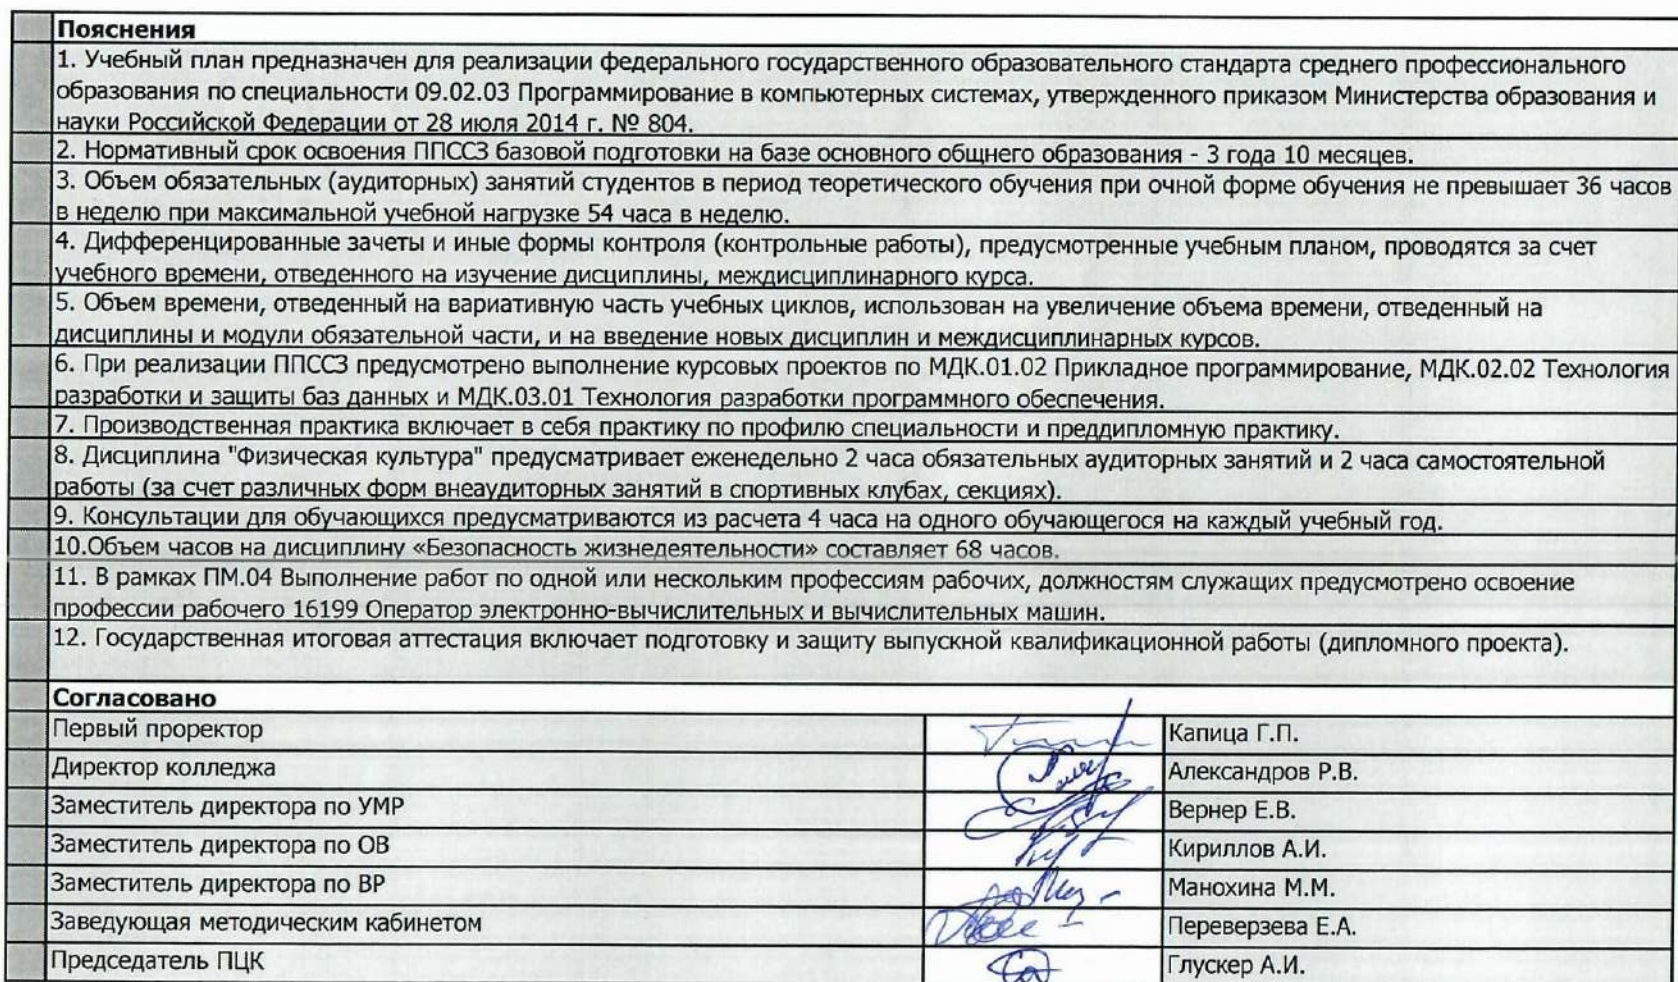 Пояснения
1. Учебный план предназначен для реализации федерального государственного образовательного стандарта среднего профессионального
образования по специальности 09.02.03 Программирование в компьютерных системах, утвержденного приказом Министерства образования и
науки Российской Федерации от 28 июля 2014 г. № 804.
2. Нормативный срок освоения ППССЗ базовой подготовки на базе основного общнего образования - 3 года 10 месяцев.
3. Объем обязательных (аудиторных) занятий студентов в период теоретического обучения при очной форме обучения не превышает 36 часов
в неделю при максимальной учебной нагрузке 54 часа в неделю.
4. Дифференцированные зачеты и иные формы контроля (контрольные работы), предусмотренные учебным планом, проводятся за счет
учебного времени, отведенного на изучение дисциплины, междисциплинарного курса.
5. Объем времени, отведенный на вариативную часть учебных циклов, использован на увеличение объема времени, отведенный на
дисциплины и модули обязательной части, и на введение новых дисциплин и междисциплинарных курсов.
6. При реализации ППССЗ предусмотрено выполнение курсовых проектов по МДК.01.02 Прикладное программирование, МДК.02.02 Технология
разработки и защиты баз данных и МДК.03.01 Технология разработки программного обеспечения.
7. Производственная практика включает в себя практику по профилю специальности и преддипломную практику.
8. Дисциплина "Физическая культура" предусматривает еженедельно 2 часа обязательных аудиторных занятий и 2 часа самостоятельной
работы (за счет различных форм внеаудиторных занятий в спортивных клубах, секциях).
9. Консультации для обучающихся предусматриваются из расчета 4 часа на одного обучающегося на каждый учебный год.
10.Объем часов на дисциплину «Безопасность жизнедеятельности» составляет 68 часов.
11. В рамках ПМ.04 Выполнение работ по одной или нескольким профессиям рабочих, должностям служащих предусмотрено освоение
профессии рабочего 16199 Оператор электронно-вычислительных и вычислительных машин.
12. Государственная итоговая аттестация включает подготовку и защиту выпускной квалификационной работы (дипломного проекта).
Согласовано
Первый проректор Капица Г.П.
Директор колледжа Александров Р.В.
Заместитель директора по УМР Вернер Е.В.
Заместитель директора по ОВ Кириллов А.И.
Заместитель директора по ВР Манохина М.М.
Заведующая методическим кабинетом Переверзева Е.А.
Председатель ПЦК Глускер А.И.